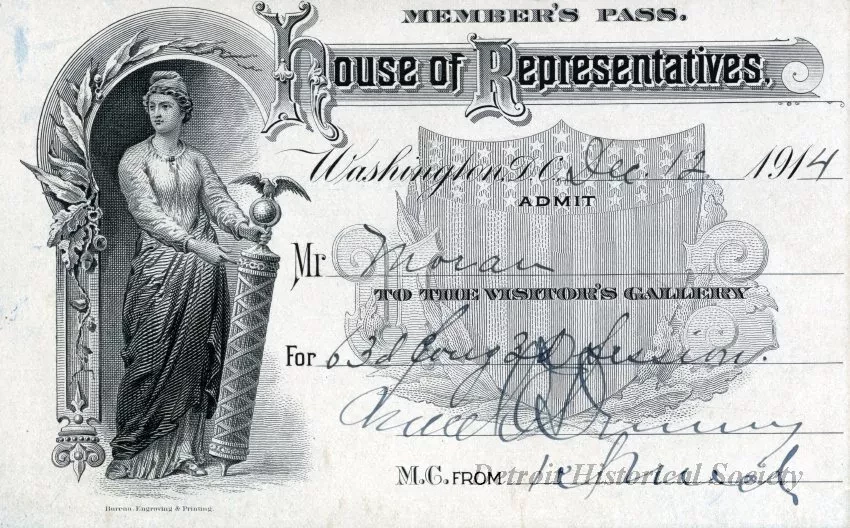 MEMBER'S PASS.
House of Representatives.
Washington, D.C. Dec. 12 1914
ADMIT
Mr Moran
TO THE VISITOR'S GALLERY
For 63d Cong 3d Session.
M.C. FROM Mich
Detroit Historical Society
Bureau, Engraving & Printing.